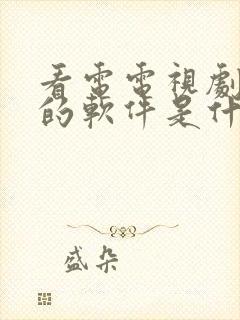 看雷電視劇
的軟件是什
盛朵